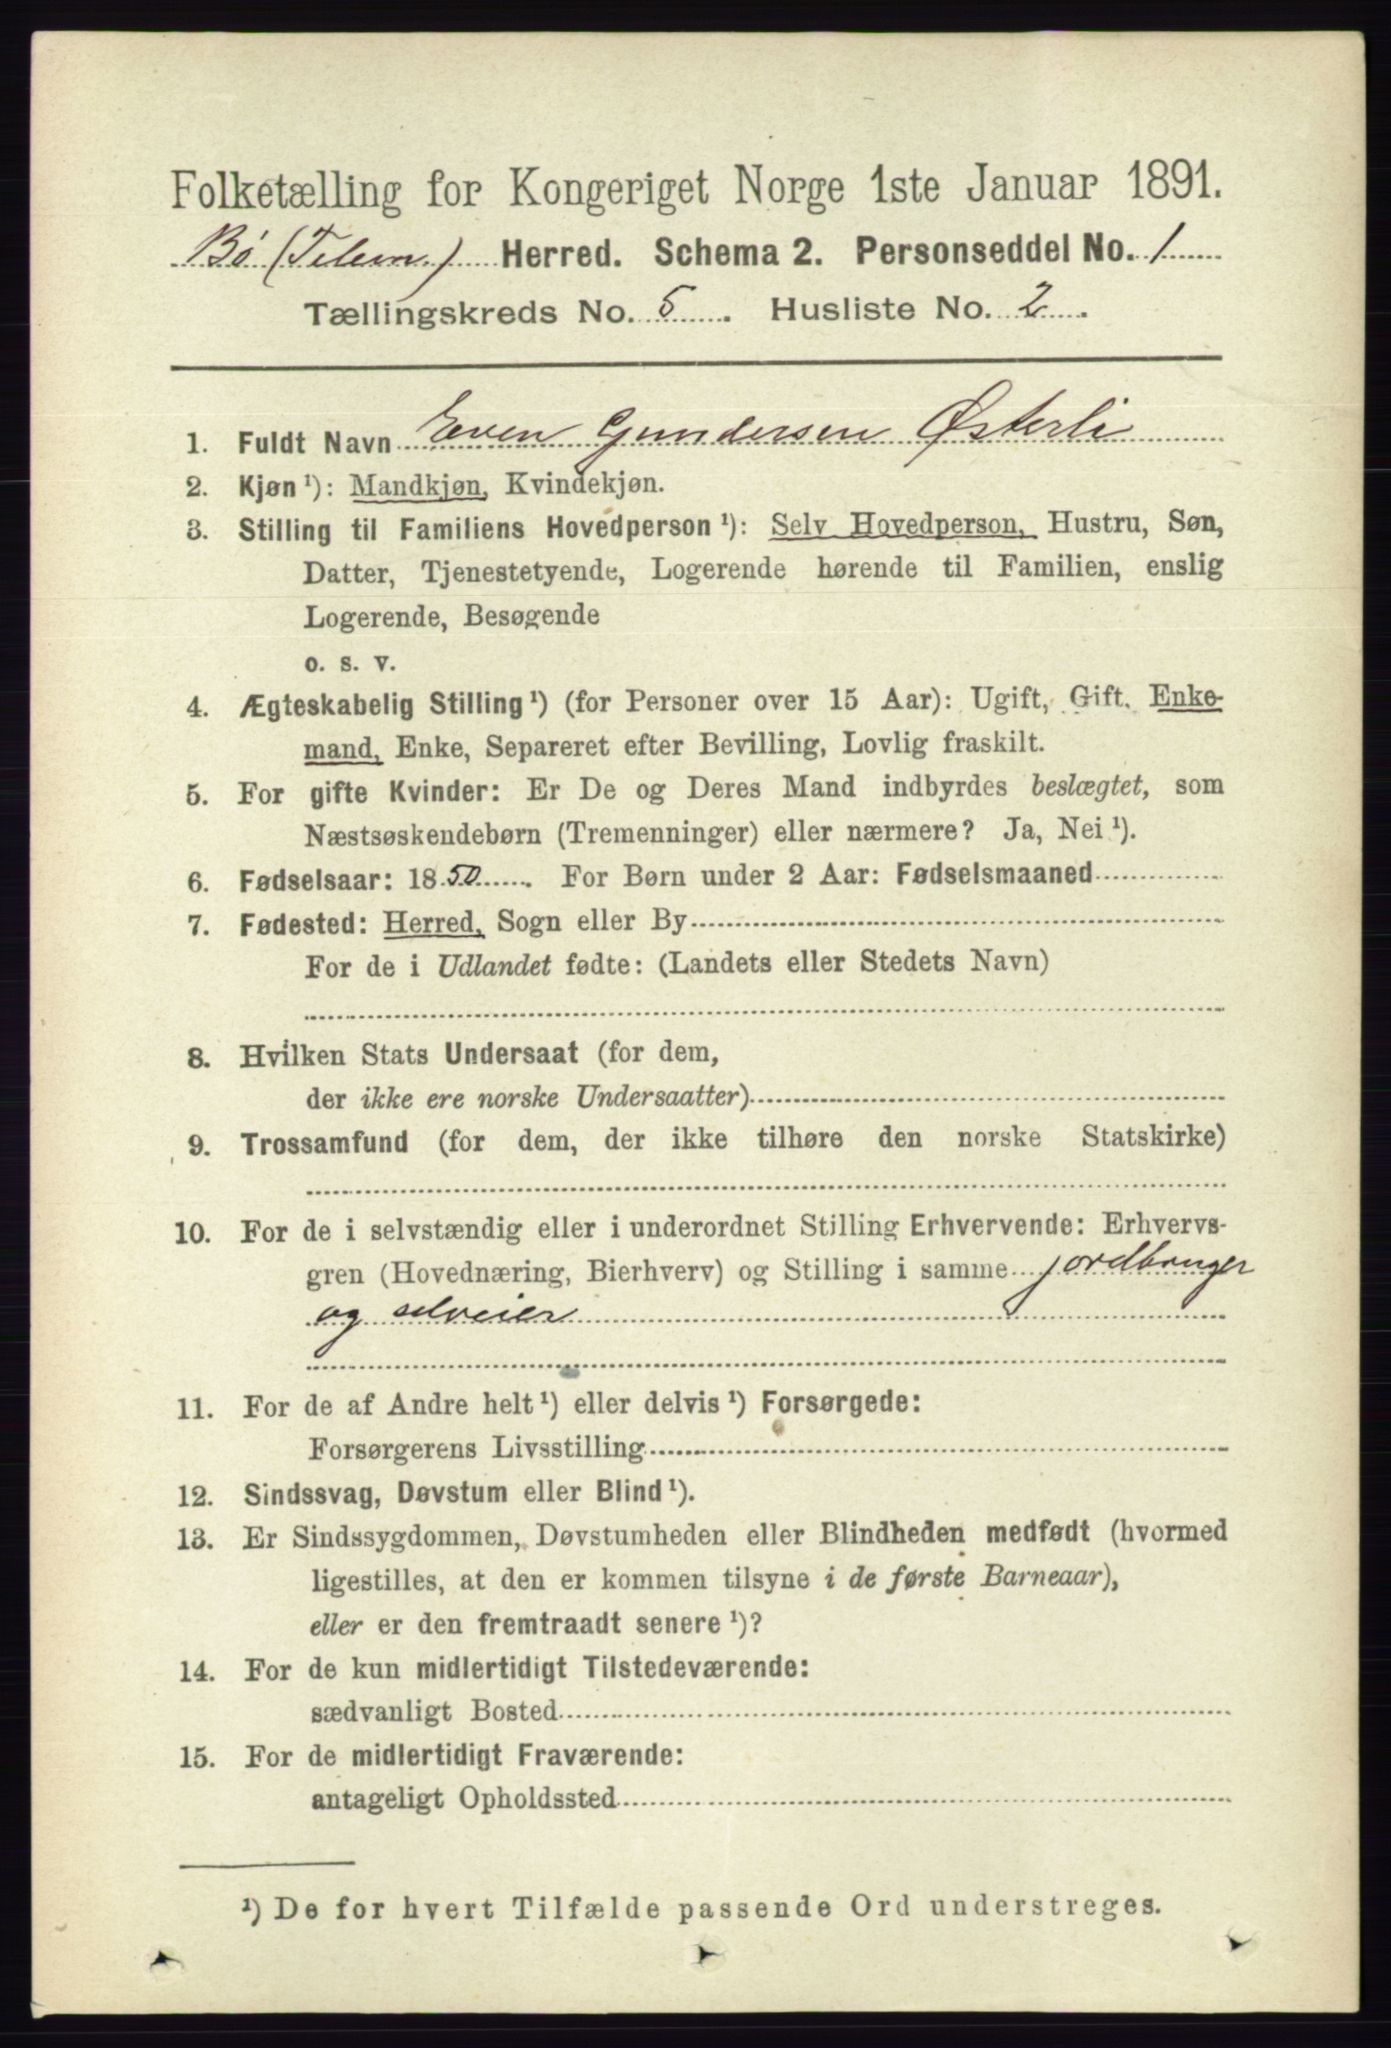 Folketælling for Kongeriget Norge 1ste Januar 1891.
Bø (Telem.) Herred. Schema 2. Personseddel No. 1
Tællingskreds No. 5. Husliste No. 2.
1. Fuldt Navn Even Gundersen Østerli
2. Kjøn ¹): Mandkjøn, Kvindekjøn.
3. Stilling til Familiens Hovedperson ¹): Selv Hovedperson, Hustru, Søn,
Datter, Tjenestetyende, Logerende hørende til Familien, enslig
Logerende, Besøgende
o. s. v.
4. Ægteskabelig Stilling ¹) (for Personer over 15 Aar): Ugift, Gift, Enke-
mand, Enke, Separeret efter Bevilling, Lovlig fraskilt.
5. For gifte Kvinder: Er De og Deres Mand indbyrdes beslægtet, som
Næstsøskendebørn (Tremenninger) eller nærmere? Ja, Nei ¹).
6. Fødselsaar: 1850. For Børn under 2 Aar: Fødselsmaaned
7. Fødested: Herred, Sogn eller By
For de i Udlandet fødte: (Landets eller Stedets Navn)
8. Hvilken Stats Undersaat (for dem,
der ikke ere norske Undersaatter)
9. Trossamfund (for dem, der ikke tilhøre den norske Statskirke)
10. For de i selvstændig eller i underordnet Stilling Erhvervende: Erhvervs-
gren (Hovednæring, Bierhverv) og Stilling i samme jordbruger
og selveier
11. For de af Andre helt ¹) eller delvis ¹) Forsørgede:
Forsørgerens Livsstilling
12. Sindssvag, Døvstum eller Blind ¹).
13. Er Sindssygdommen, Døvstumheden eller Blindheden medfødt (hvormed
ligestilles, at den er kommen tilsyne i de første Barneaar),
eller er den fremtraadt senere ¹)?
14. For de kun midlertidigt Tilstedeværende:
sædvanligt Bosted
15. For de midlertidigt Fraværende:
antageligt Opholdssted
¹) De for hvert Tilfælde passende Ord understreges.